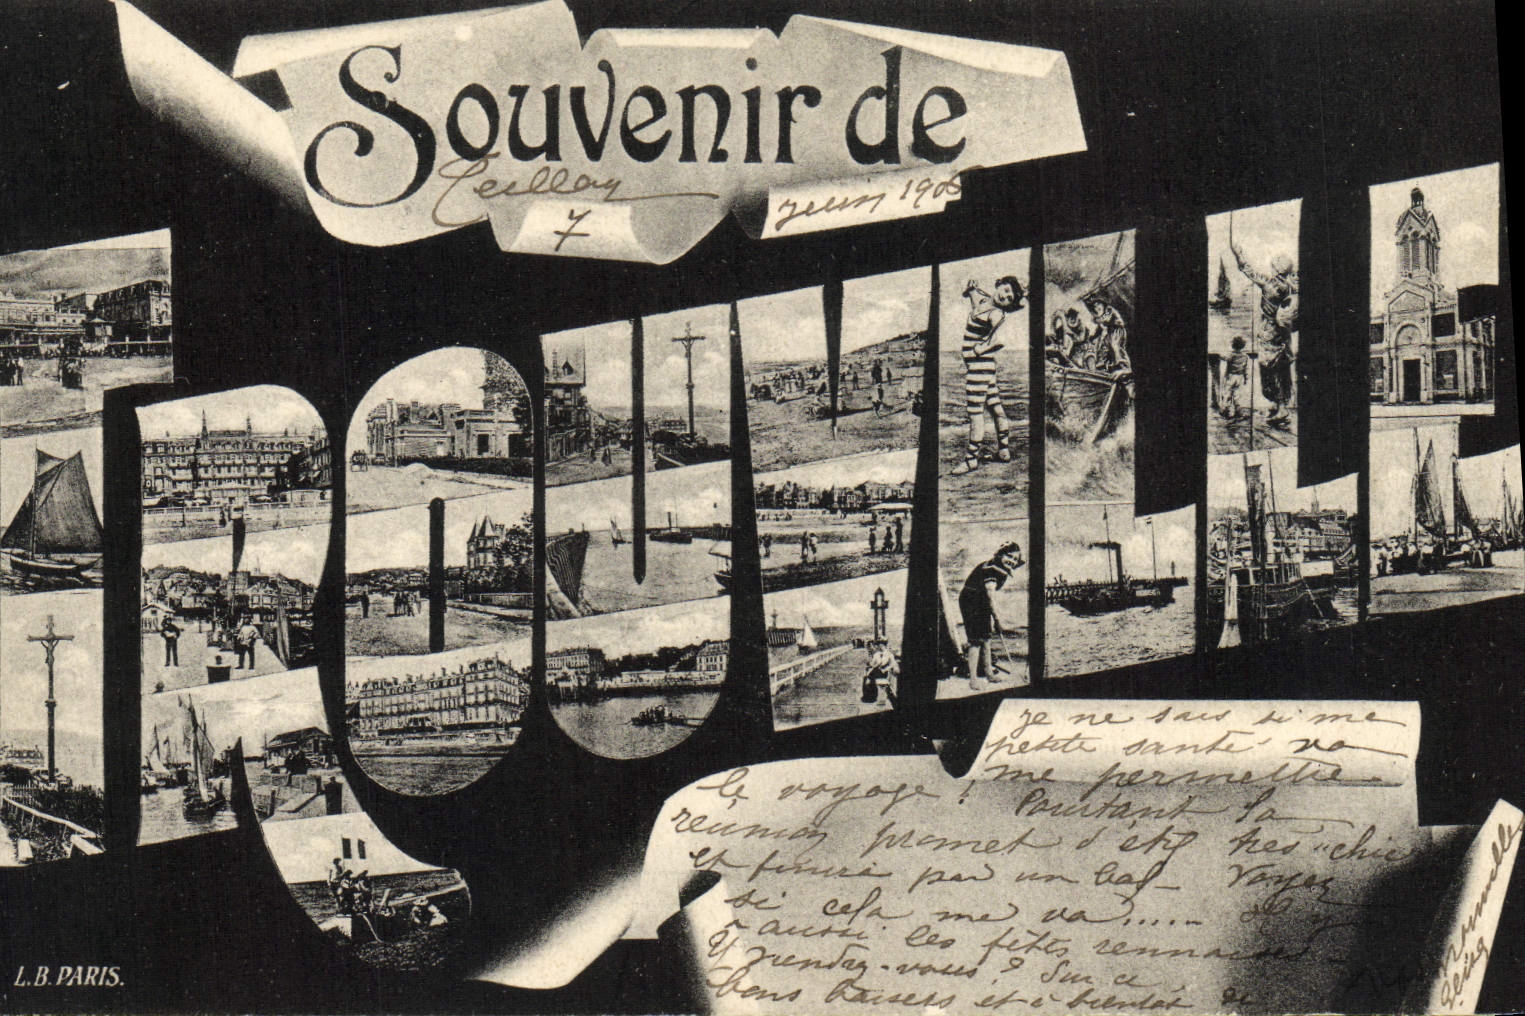 Souvenir de
7 juin 190
TROUVILLE
je ne sais si ma
petite santé va
me permettre
le voyage ! Pourtant la
réunion promet d'être très "chic
et finira par un bal - Voyez
si cela me va ......
a aussi les fêtes rennaises -
Y viendrez-vous ? Sur ce,
bons baisers et à bientôt de
L.B. PARIS.